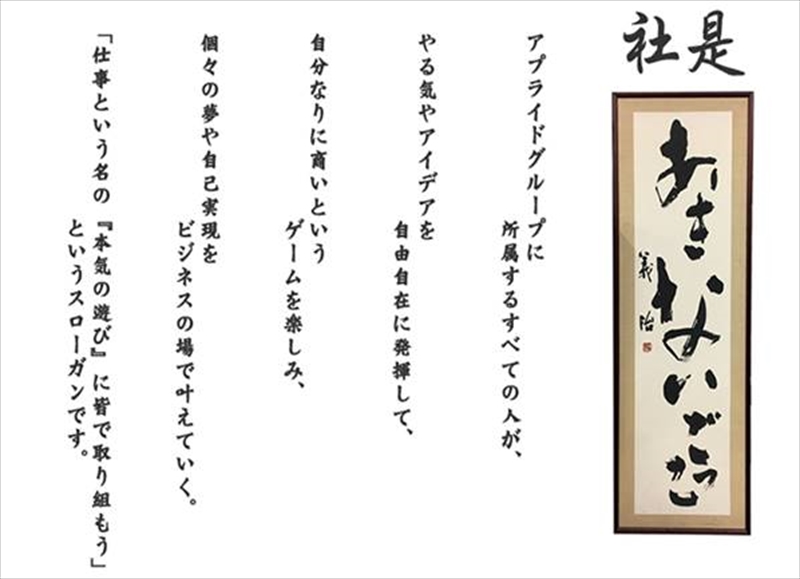 社是
あきないごっこ
義治
アプライドグループに
所属するすべての人が、
やる気やアイデアを
自由自在に発揮して、
自分なりに商いという
ゲームを楽しみ、
個々の夢や自己実現を
ビジネスの場で叶えていく。
「仕事という名の『本気の遊び』に皆で取り組もう」
というスローガンです。